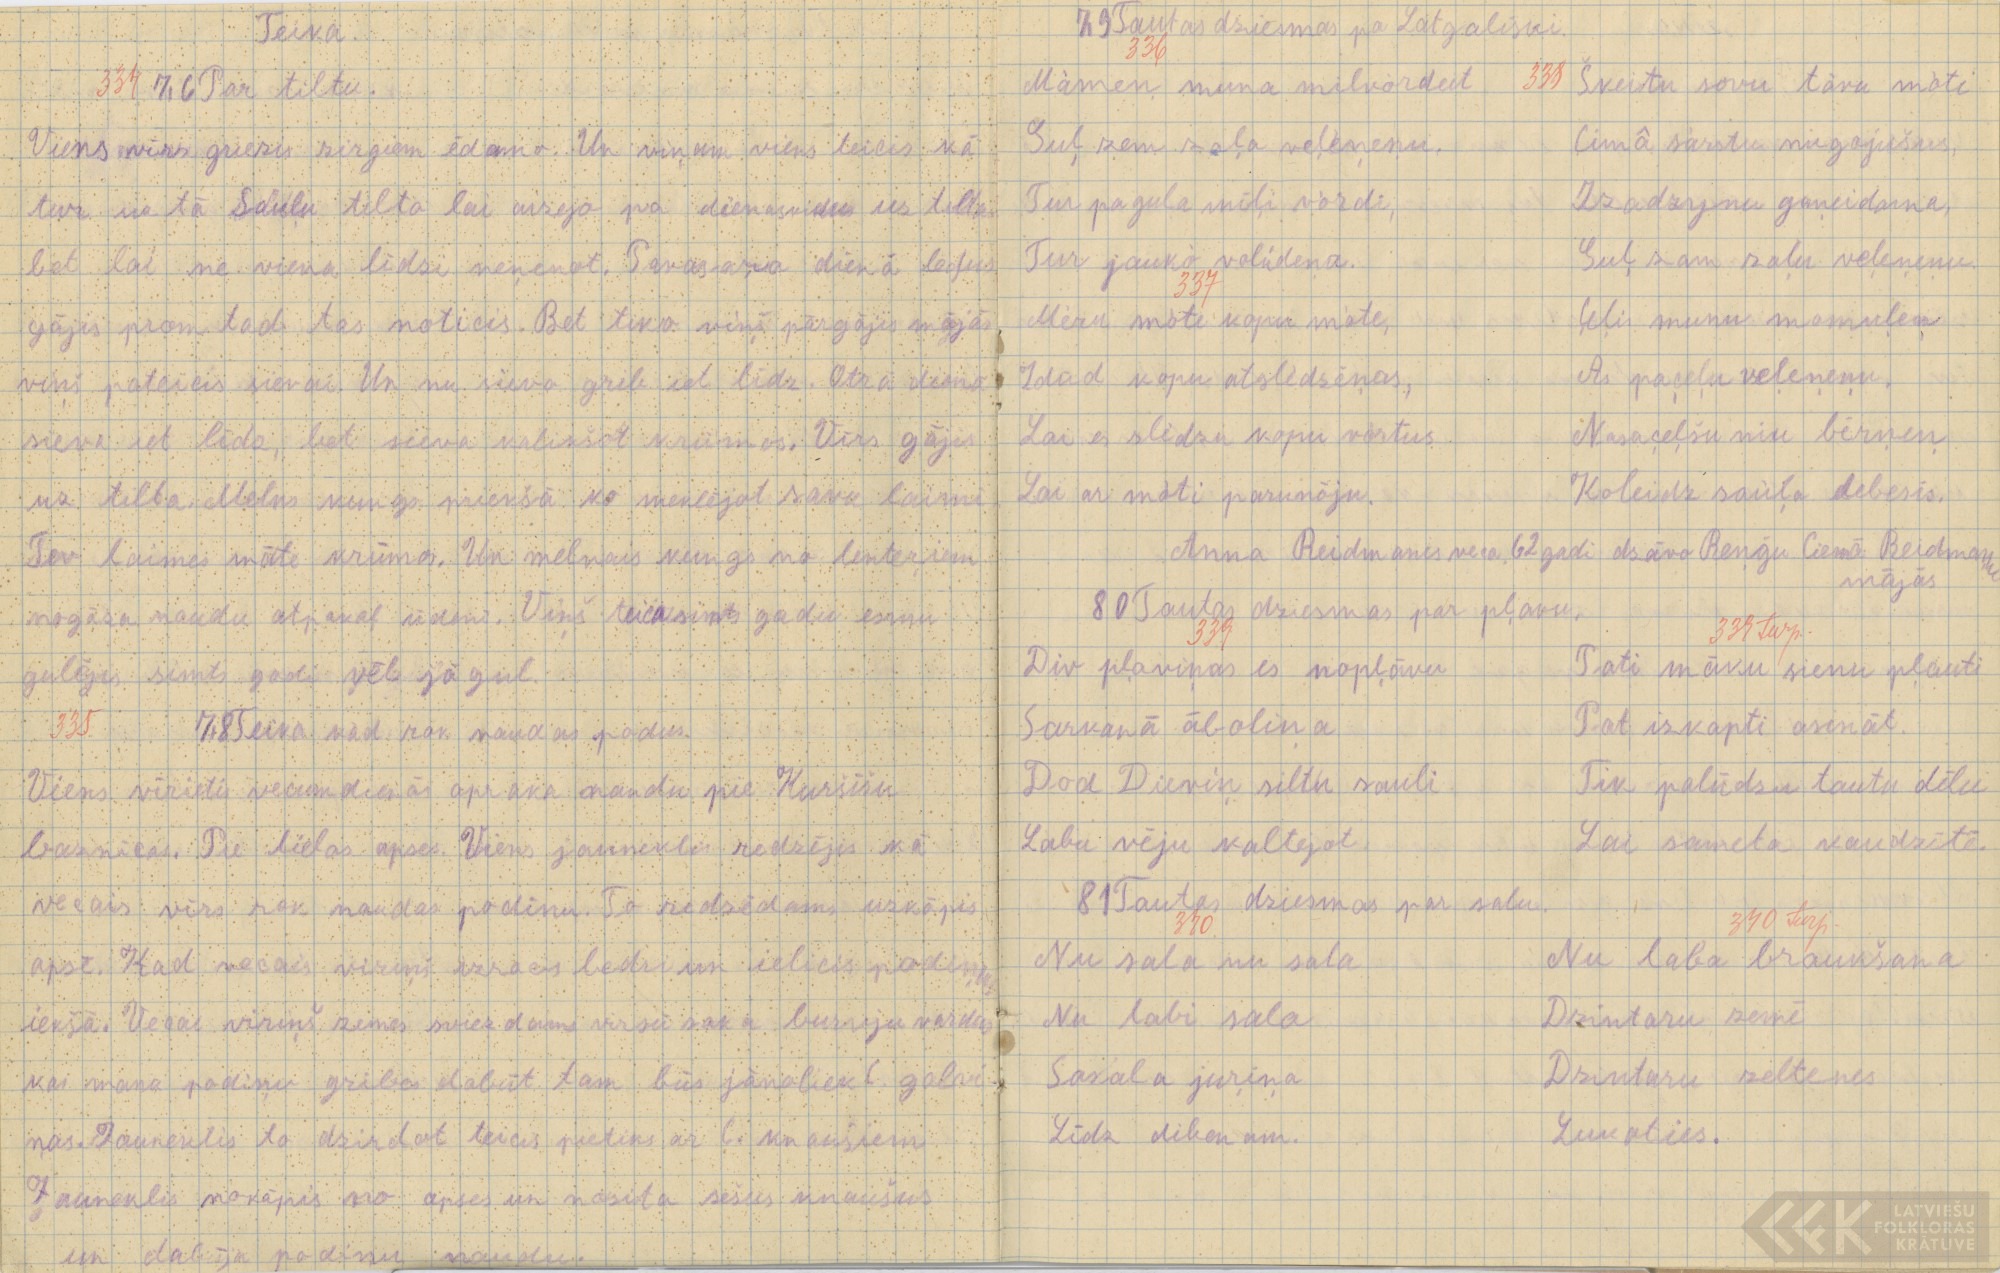 Teika.
334 76 Par tiltu.
Viens vīrs griezis zirgiem ēdamo. Un viņam viens teicis kā
tur uz tā Sduļu tilta lai aizejo pa dienasvidus uz tiltu
bet lai ne viena līdzi neņemot. Pavasara dienā ledus
gājis prom tad tas noticis. Bet tiko viņš pārgājis mājās
viņš pateicis sievai. Un nu sieva grib iet līdz. Otrā dienā
sieva iet līdz, bet sieva krūmos. Vīrs gājis
uz tilta. Melns kungs priekšā ko meklējot savu laimi
Tev laimes māte krūmos. Un melnais kungs no
nogāza naudu atpakaļ ūdenī. Viņš teica simts gadu esmu
gulējis simts gadi vēl jāgul.
335 78 Teika kad rok naudas podus.
Viens vīrietis vecumdienās apraka naudu pie Karsišu
baznīcas. Pie lielas apses. Viens jauneklis redzējis kā
vecais vīrs rok naudas podiņu. To redzēdams uzkāpis
apsē. Kad vecais viriņš izracis bedri un ielicis podiņu
iekšā. Vecai viriņš zemes sviezdams virsū saka burvju vārdus
kas mana podiņu gribēs dabūt tam būs jānoliek 6. galvi
nas. Jauneklis to dzirdot teicis pietiks ar 6. knaušiem
Jauneklis nokāpis no apses un nosita sešus knaušus
un dabūja podiņu naudu.
79 Tautas dziesmas pa Latgaliski.
336
Màmeņ muna milvòrdeit
Guļ zem zaļa veļeņenu.
Tur pagula mīļi vòrdi,
Tur jaukò volúdeņa.
337
Mèra mòte kopu mòte,
Idad kopu atslèdzèņas,
Lai es slèdzu kopu vòrtus
Lai ar mòti parunòju.
338 Škeitu sovu tàva mòti
Cimâ sàrstu nugòjušus,
Izadzynu gaņeidama,
Guļ zam zaļu veļeņenu.
Celis munu momuļeņ
As paceļu veļeņenu,
Nasaceļšu niu bèrneņ
Koleidz sauļa debesìs.
Anna Reidmanes veca 62 gadi dzīvo Reņģu Ciemā Reidmaņu
mājās
80 Tautas dziesmas par pļavu.
339
Div pļaviņas es nopļāvu
Sarkanā āboliņa
Dod Dieviņ siltu sauli
Labu vēju kaltejot
339 turp.
Pati māku sienu pļauti
Pat izkapti asināt.
Tik palūdzu tautu dēlu
Lai sameta kaudzītē.
81 Tautas dziesmas par salu.
340
Nu sala nu sala
Nu labi sala
Sasala juriņa
Līdz dibenam.
340 turp.
Nu laba braukšana
Dzintaru zemē
Dzintaru zeltenes
Lukoties.
LATVIEŠU
FOLKLORAS
KRĀTUVE